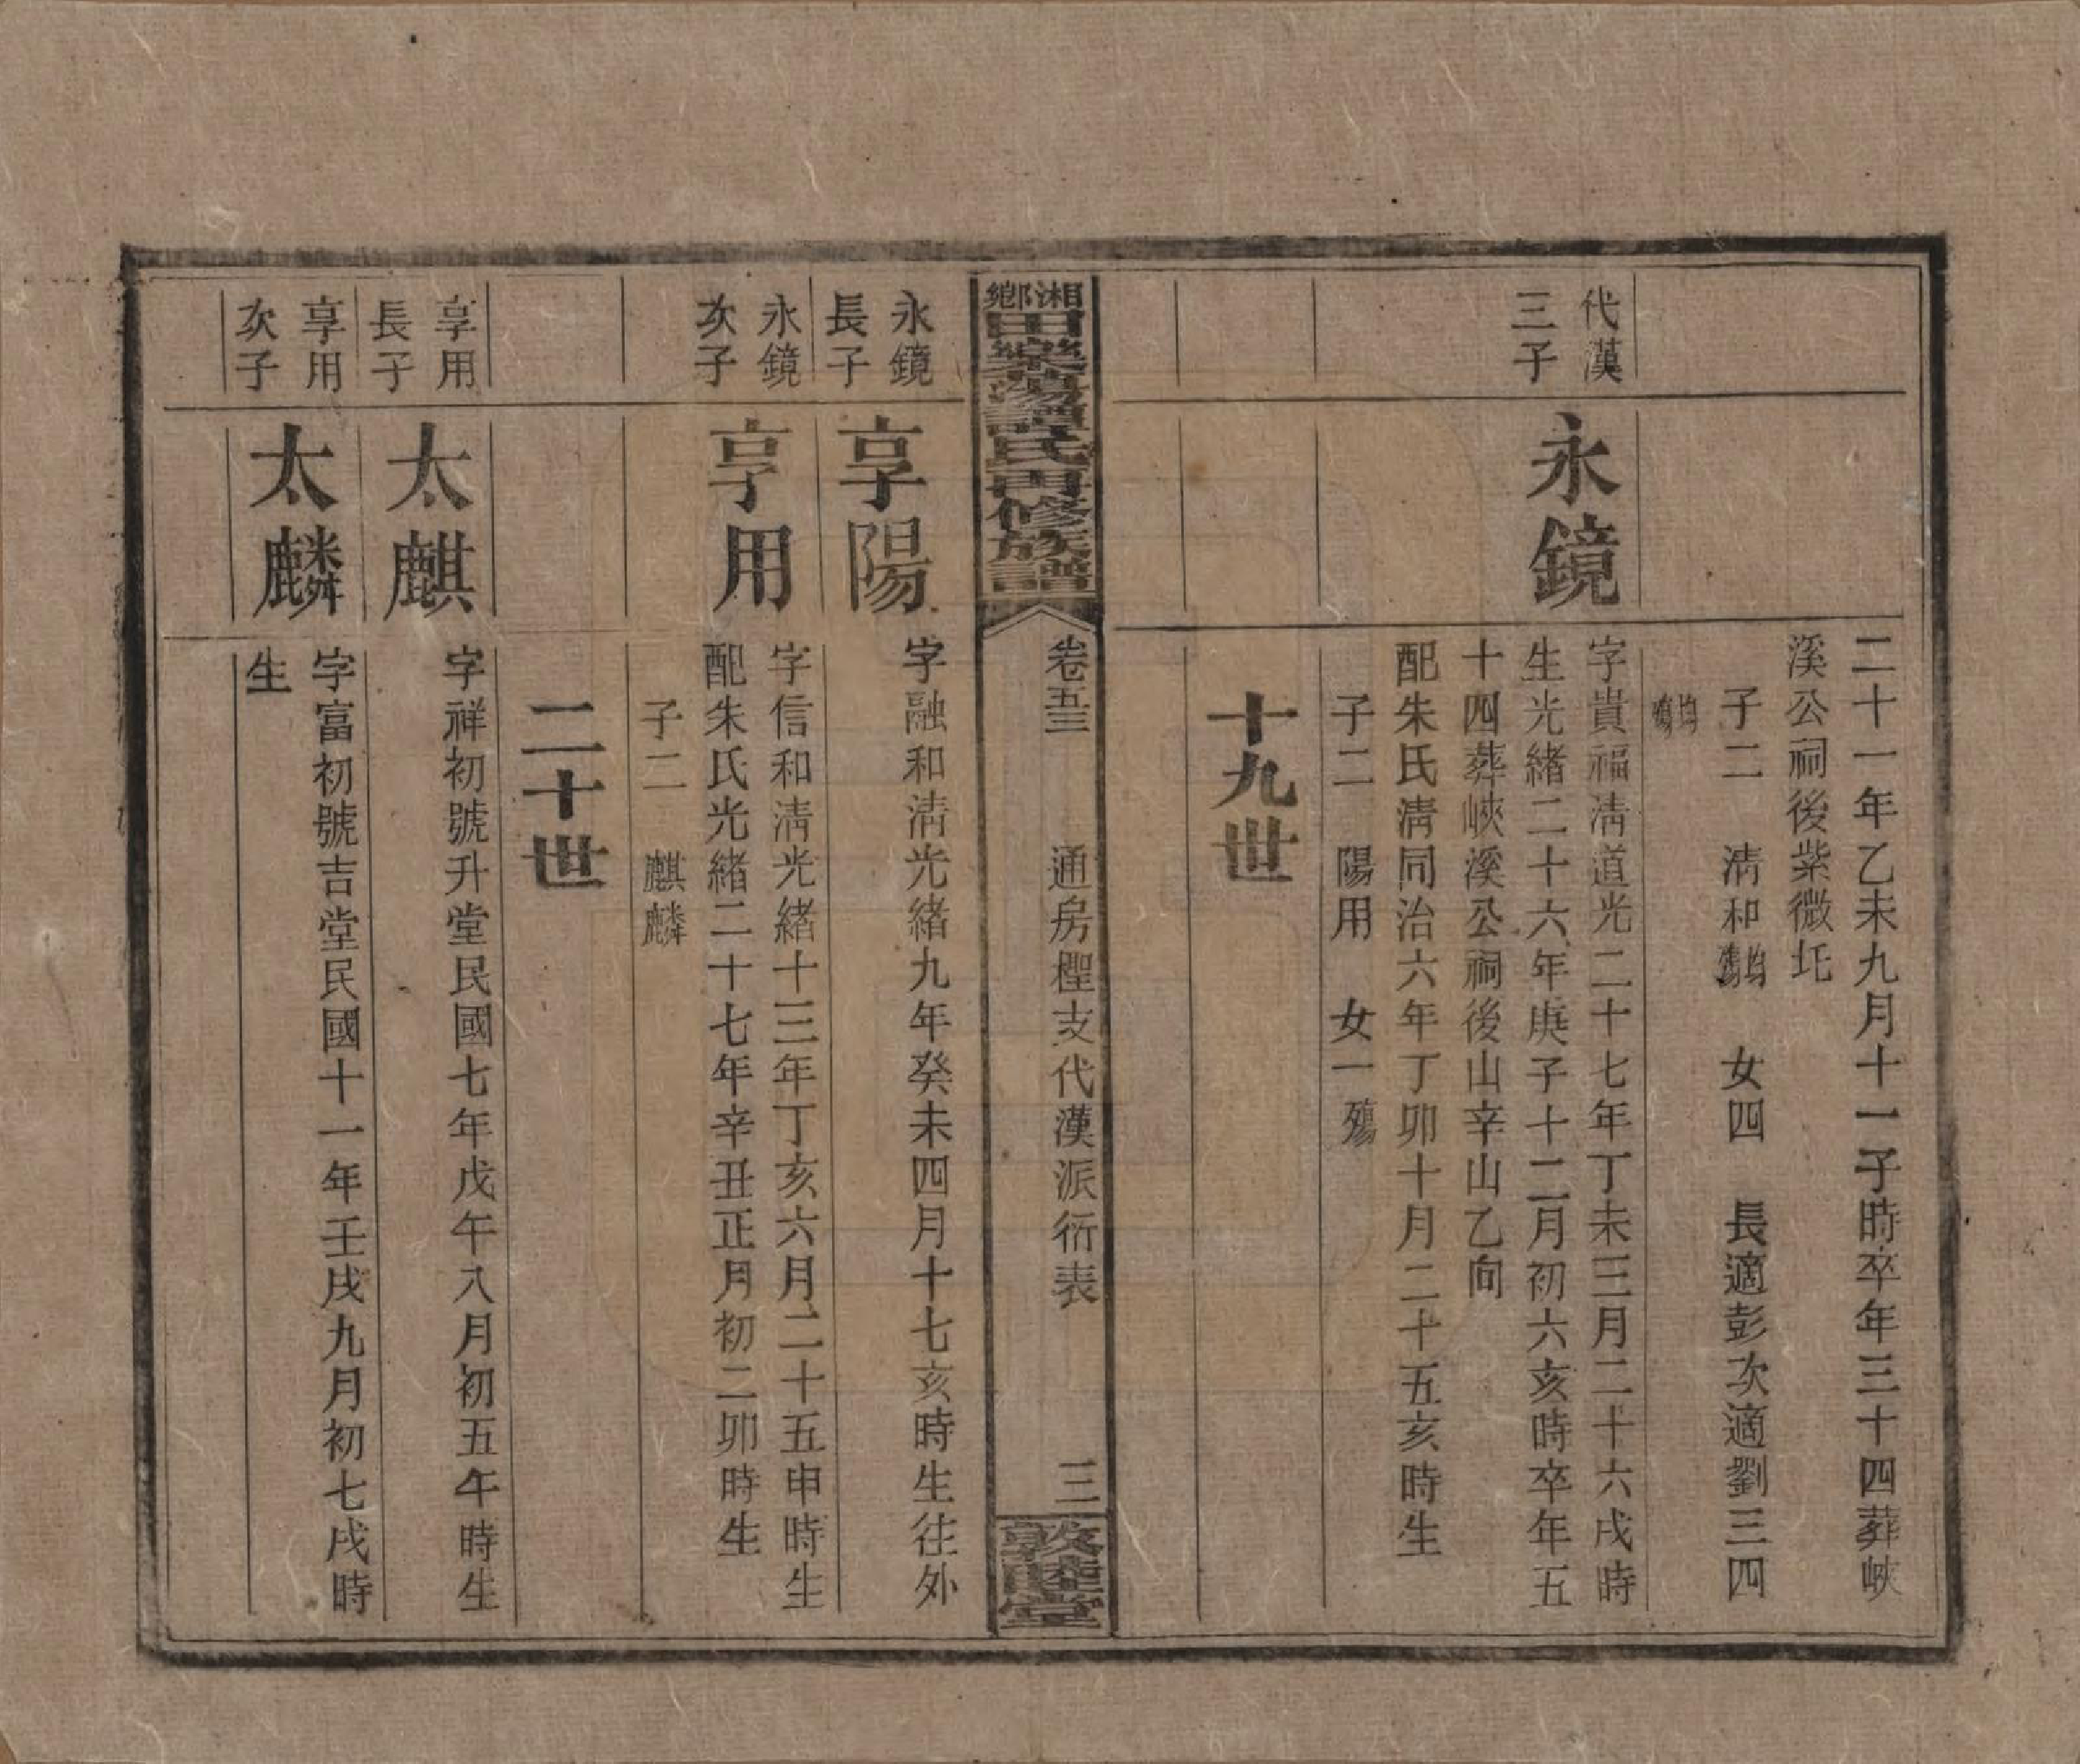 二十一年乙未九月十一子時卒年三十四葬峽
溪公祠後紫微圫
子二　清和均殤　女四　長適彭次適劉三四
均殤
代漢三子
永鏡
字貴福清道光二十七年丁未三月二十六戌時
生光緒二十六年庚子十二月初六亥時卒年五
十四葬峽溪公祠後山辛山乙向
配朱氏清同治六年丁卯十月二十五亥時生
子二　陽用　女一殤
十九世
湘鄉田樂蕩譚氏再修族譜
卷五三　通房檉支代漢派衍表　三
敦睦堂
永鏡長子
享陽
字融和清光緒九年癸未四月十七亥時生往外
永鏡次子
享用
字信和清光緒十三年丁亥六月二十五申時生
配朱氏光緒二十七年辛丑正月初二卯時生
子二　麒麟
二十世
享用長子
太麒
字祥初號升堂民國七年戊午八月初五午時生
享用次子
太麟
字富初號吉堂民國十一年壬戌九月初七戌時
生